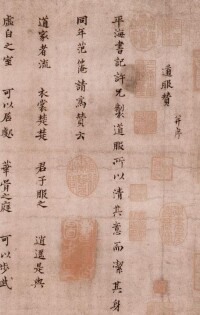 道服贊 并序
平海書記許兄製道服所以清其意而潔其身
同年范僊請爲贊云
道家者流 衣裳楚楚 君子服之 逍遥是與
虚白之室 可以居處 華胥之庭 可以步武